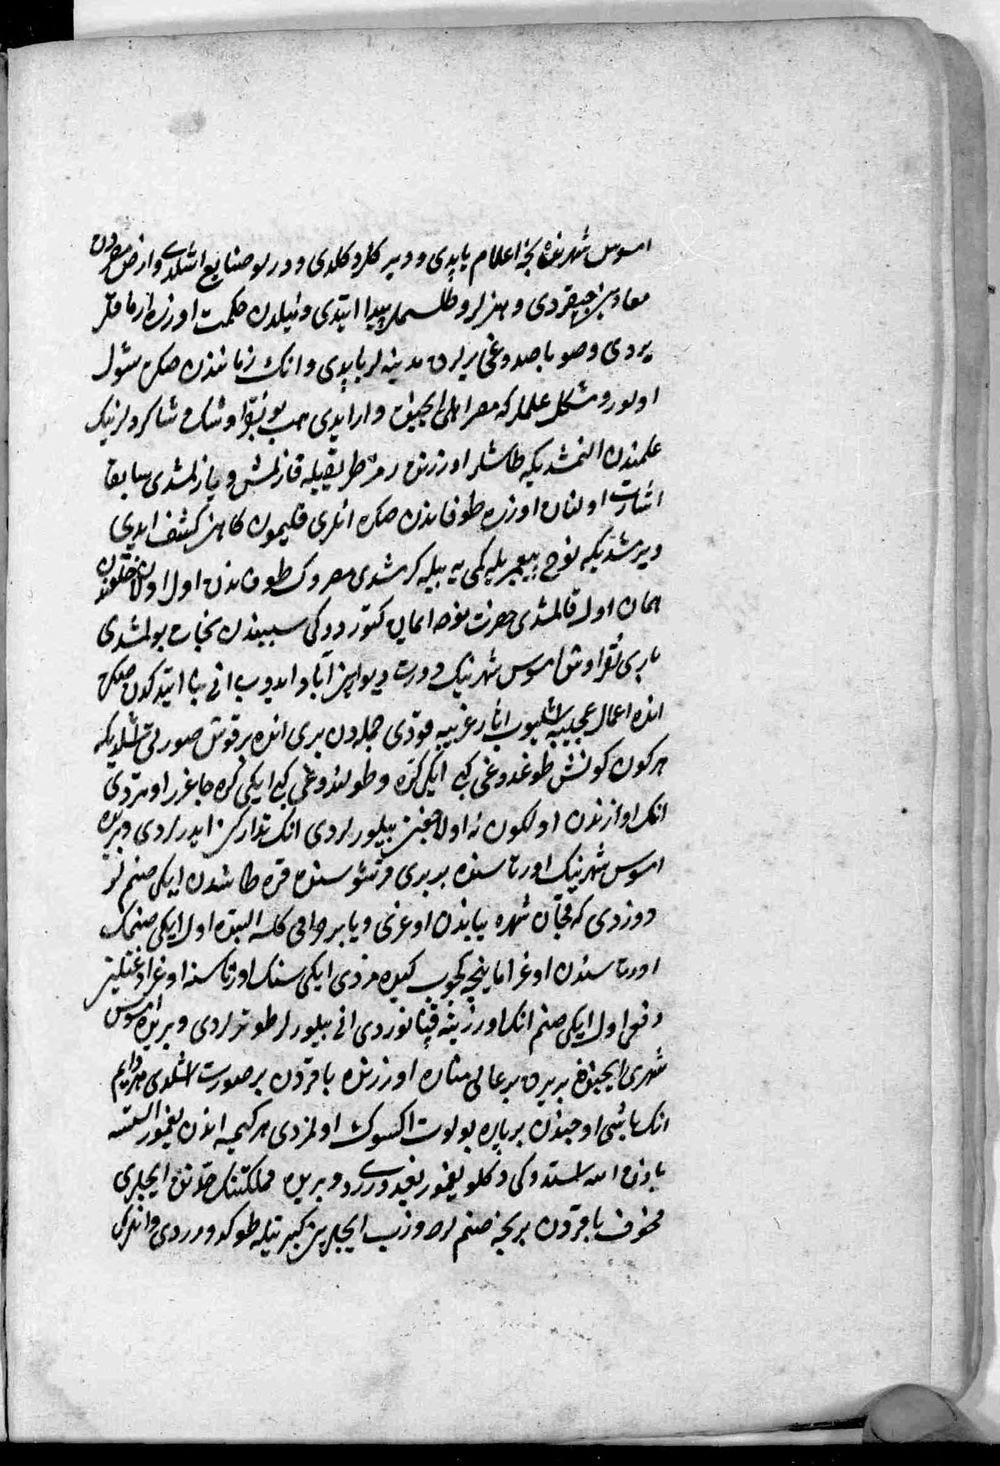 امسوس شهرنده نیجه اعلام یاپدی و دیرکلر دکلدی و درلو صنایع اشلدی و ارض مصردن
معادن چیقردی و هنرلر و طلسملر پیدا ایتدی و نیلدن حکمت اوزره ارماقلر
یردی و صو باصدوغی یرلرده مدینه لر یاپدی و انک زماننذن صکره شول
اولور و مشکل علملر که مصر اهلی ایچینده وار ایدی هب بو نقراوشک شاکردلرنیک
علمندن النمشدیکه طاشلر اوزرنه رمز طریقیله قازلمش و یازلمشدی سابقا
اشارت اولنان اوزره طوفاندن صکره انلری فلیمون کاهن کشف ایدی
دیرمشدیکه نوح پیغمبریله کمی یه بیله کرمشدی مصروک طوفاندن اول اولان خلقندن
همان اول قالمشدی حضرت نوحه ایمان کتوردوکی سببندن نجات بولمشدی
باری نقراوش امسوس شهرنیک دورت دیوارین آباد ایدوب انی بنا ایتدکدن صکره
انده اعمال عجیبه اشلیوب اثار غریبه قودی جمله دن بری انده بر قوش صورتی اشلدیکه
هر کون کونش طوغدوغی کبی ایکی کره و طولندوغی کبی ایکی کره چاغرر اوتردی
انک اوازندن اولکون نه اولاجغن بیلورلردی انک تدارکن ایدرلردی و بریده
امسوس شهرنیک اورتاسنده بربری قرشوسنده قره طاشدن ایکی صنم لر
دوزدی که قچان شهره یباندن اوغری و یا بر حرامی کلسه البته اول ایکی صنمک
اورتاسندن اوغراماینجه کچوب کیده مزدی ایکی سنک اورتاسنه اوغرادغیلین
دفعی اول ایکی صنم انک اوزرینه قپانوردی انی بیلورلر طوترلردی و بریده امسوس
شهری ایچینده بر یرده بر عالی مناره اوزرنده باقردن بر صورت اشلدی هر دایم
انک باشی اوجندن بر پاره بولوت اکسوک اولمزدی هر کیمسه اندن یغمور استسه
باذن الله استدوکی دکلو یغمور یغدوررردی و بریده مملکتنک حدنده ایچلری
مجوف باقردن بر نیجه صنم لر دوزب ایچلرین کبریتیله طولدوردی و انلری